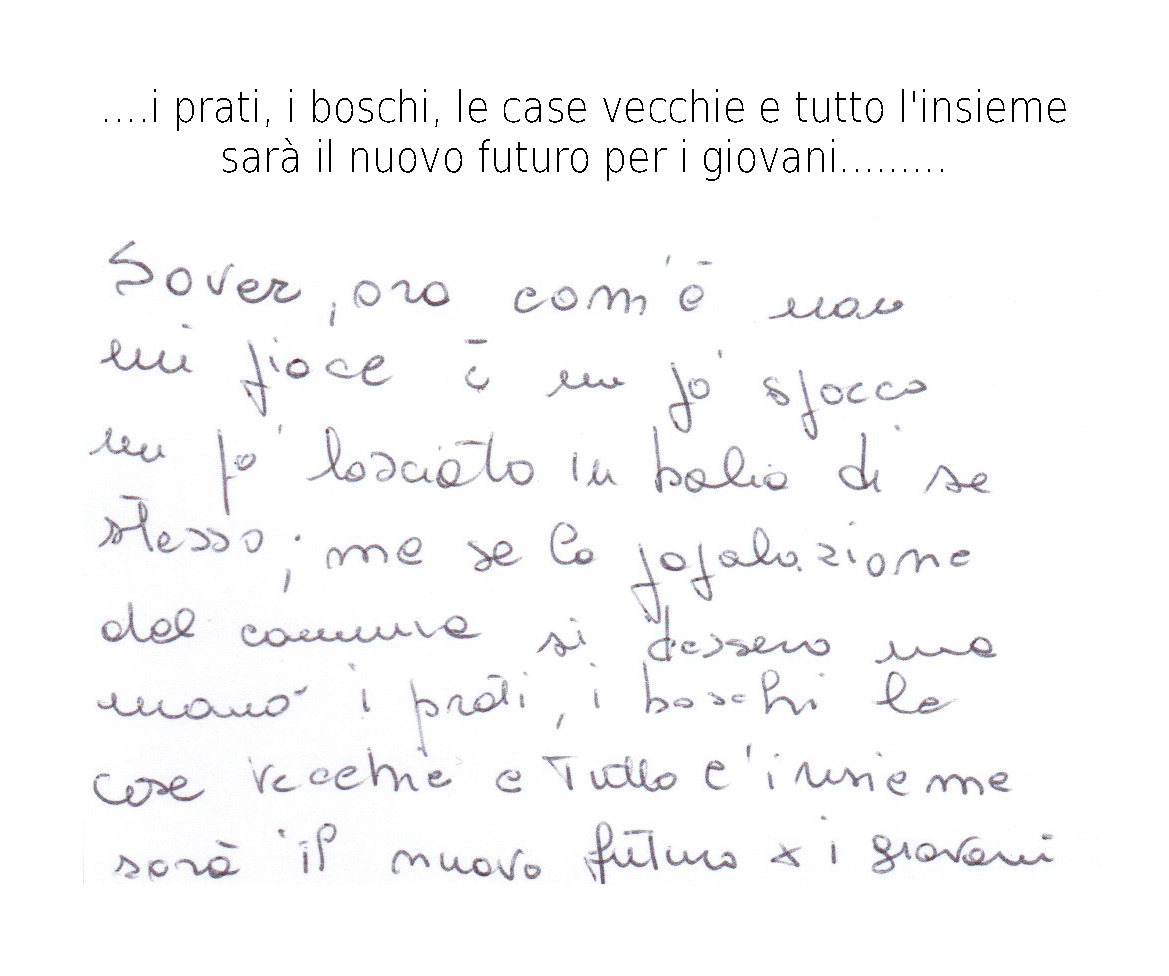 ....i prati, i boschi, le case vecchie e tutto l'insieme
sarà il nuovo futuro per i giovani.........
Sover, ora com'è non
mi piace è un po' sporco
un po' lasciato in balia di se
stesso; ma se la popolazione
del comune si dessero una
mano i prati, i boschi le
case vecchie e tutto l'insieme
sarà il nuovo futuro x i giovani